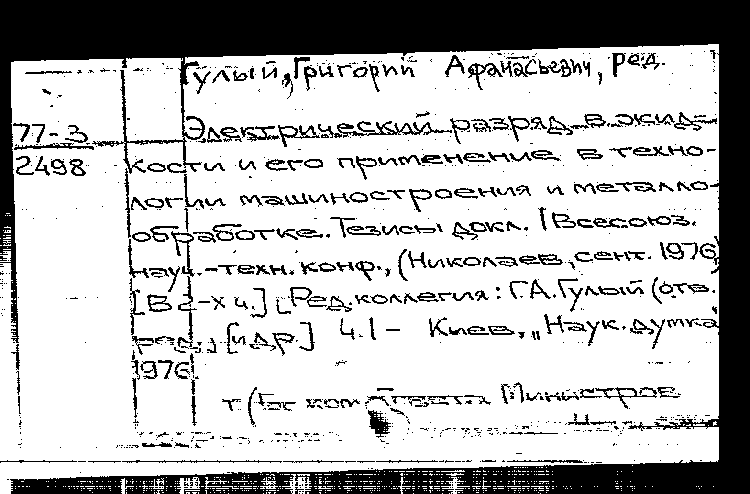 Гулый, Григорий Афанасьевич, ред.
77-3 Электрический разряд в жид-
2498 кости и его применение в техно-
логии машиностроения и металло-
обработке. Тезисы докл. I Всесоюз.
науч.-техн. конф., (Николаев, сент. 1976)
[В 2-х ч.] [Ред. коллегия: Г.А. Гулый (отв.
ред.), [и др.] Ч.1- Киев, "Наук. думка"
1976.
т (Гос ком Совета Министров